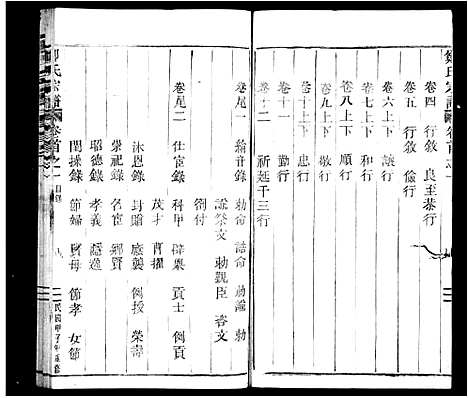 鄒氏宗譜 卷首之一
卷四 行敘 良至恭行
卷五 行敘 儉行
卷六上下 讓行
卷七上下 和行
卷八上下 順行
卷九上下 敬行
卷十上下 忠行
卷十一 勤行
卷十二 祈廷干三行
卷尾一 綸音錄 勅命 誥命 勅諭 勅
諭祭文 勅覲臣 咨文
劄付
卷尾二 仕宦錄 科甲 薦舉 貢士 例貢
茂才 肖選
沐恩錄 封贈 廕襲 例授 榮壽
崇祀錄 名宦 鄉賢
昭德錄 孝義 隱逸
閨操錄 節婦 賢母 節孝 女節
鄒氏宗譜 卷首之一 目錄